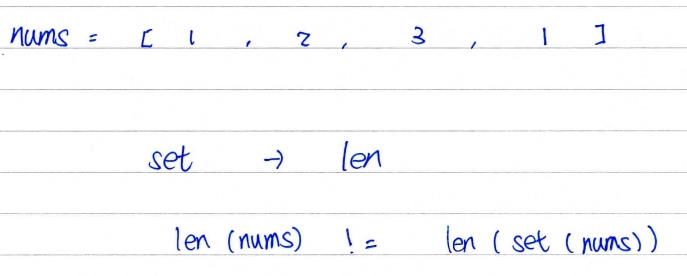 nums = [ 1 , 2 , 3 , 1 ]
set → len
len (nums) != len ( set (nums))